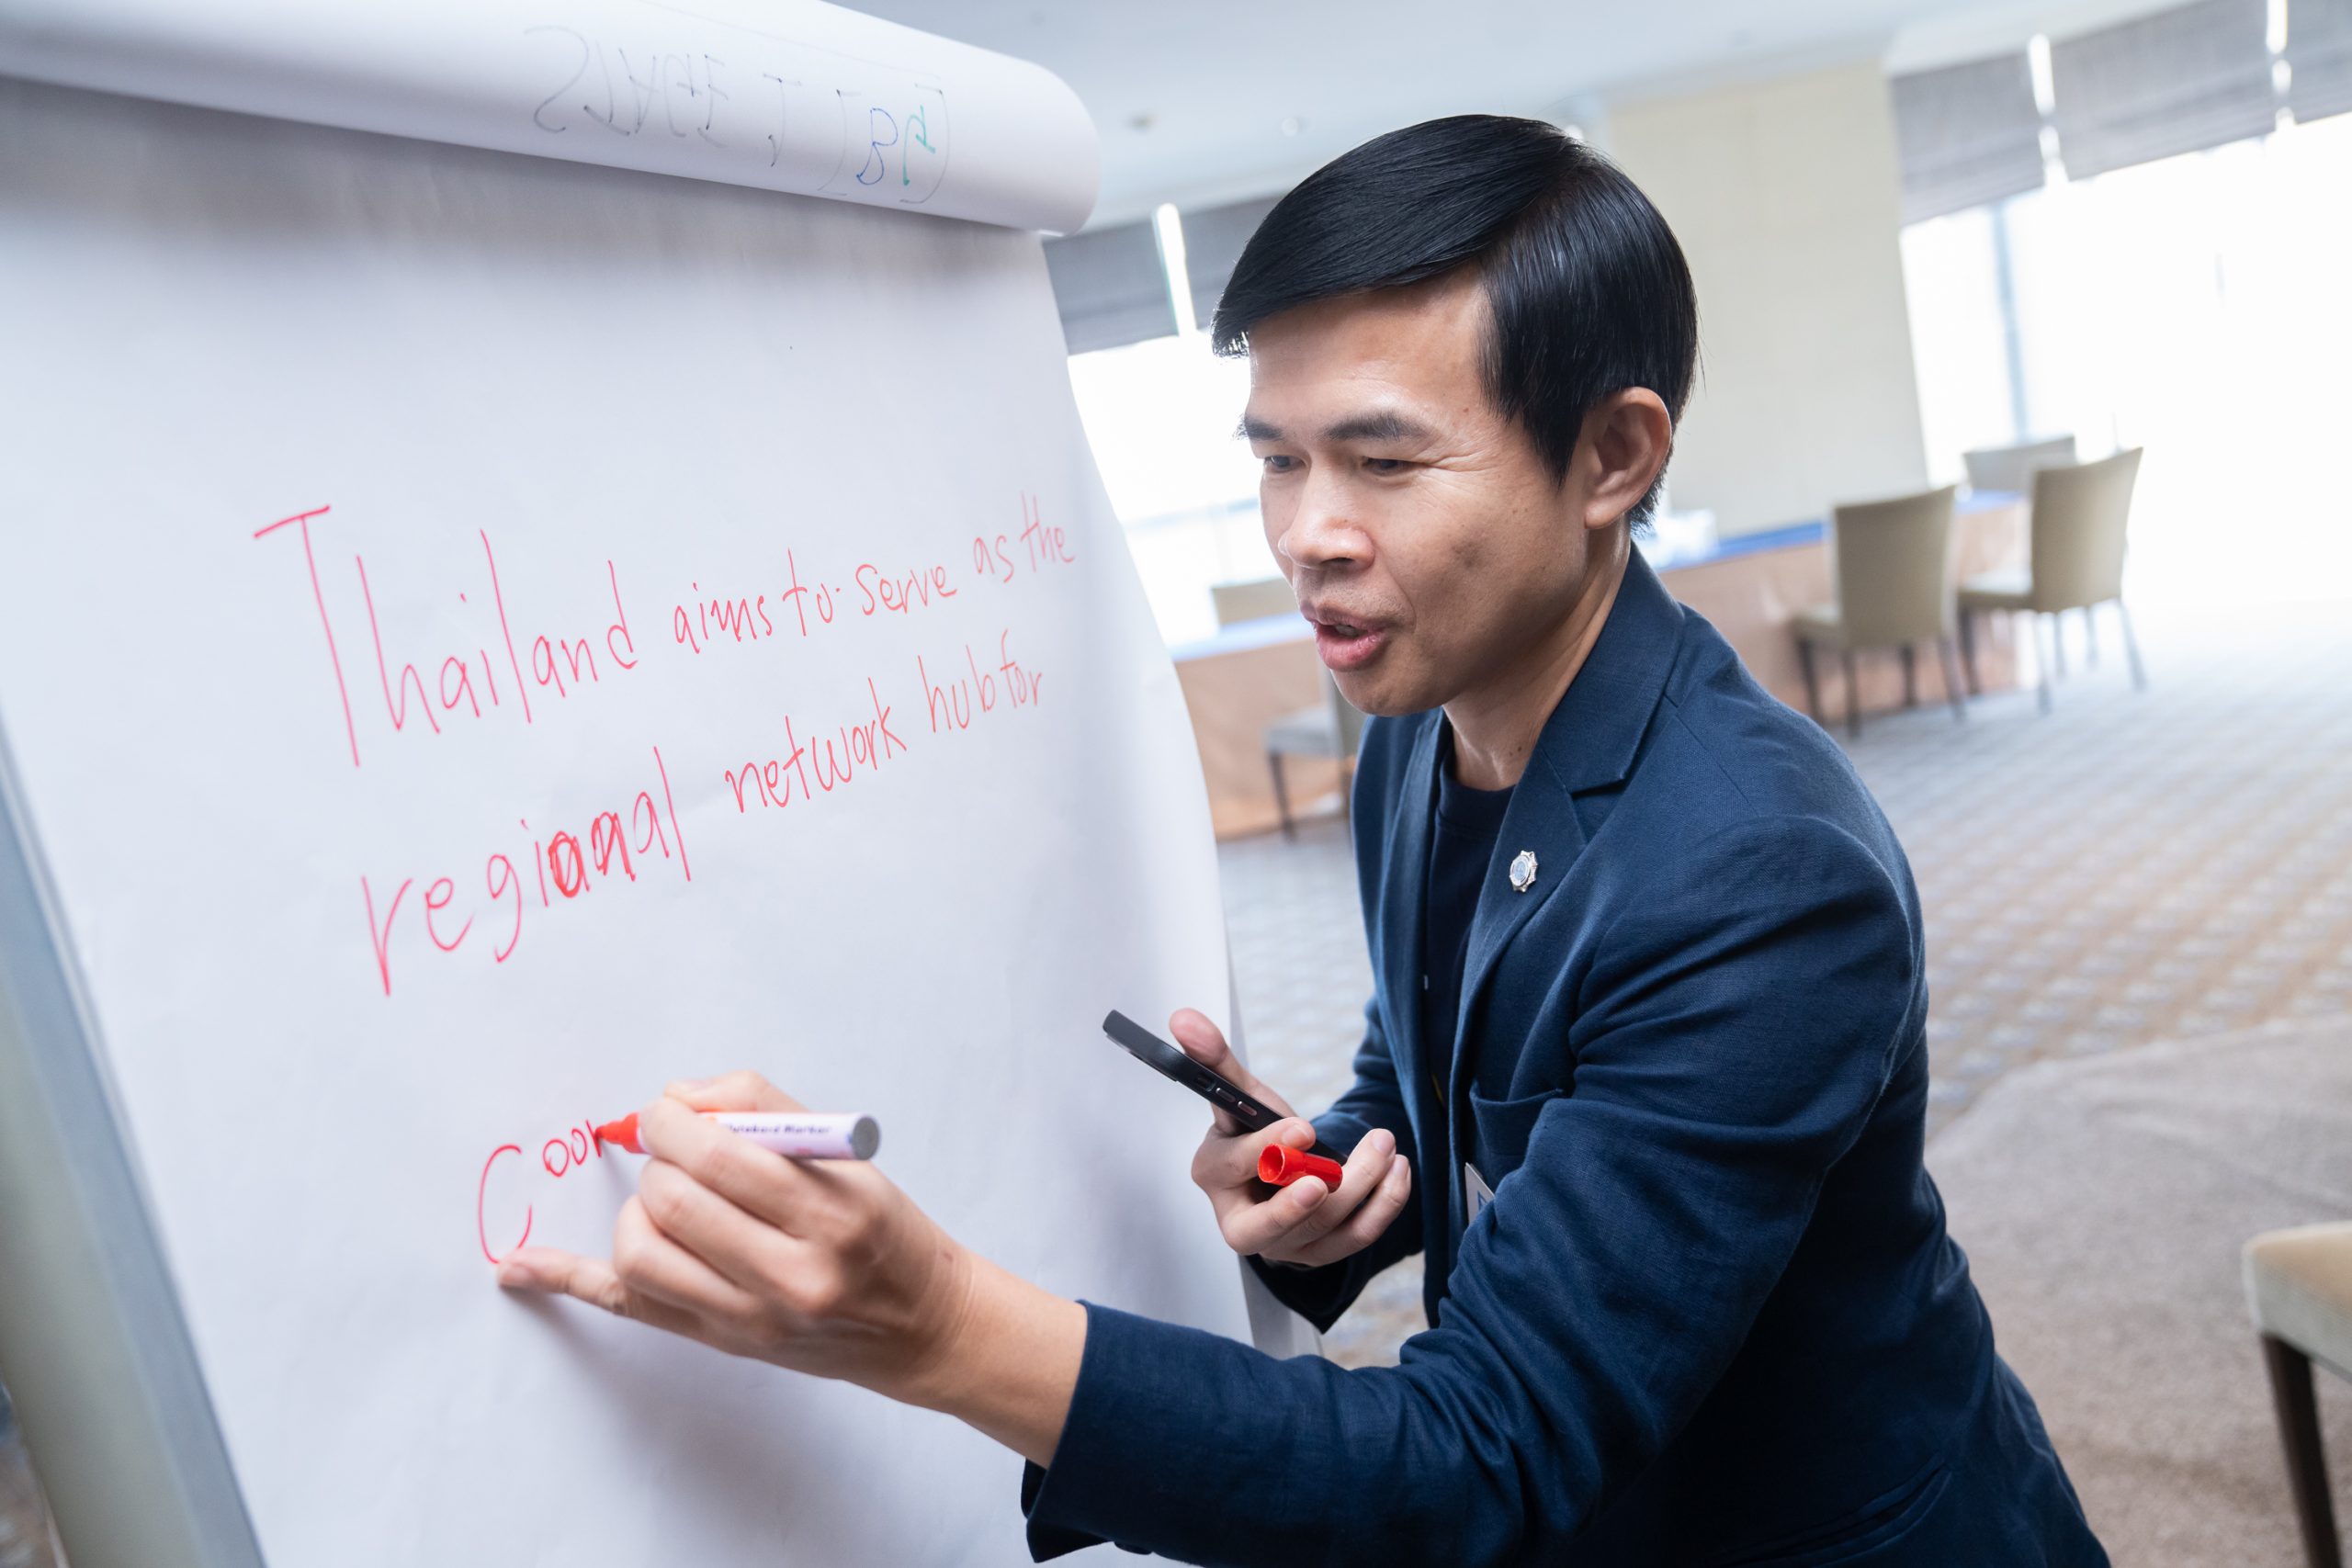 Thailand aims to serve as the
regional network hub for
Coor